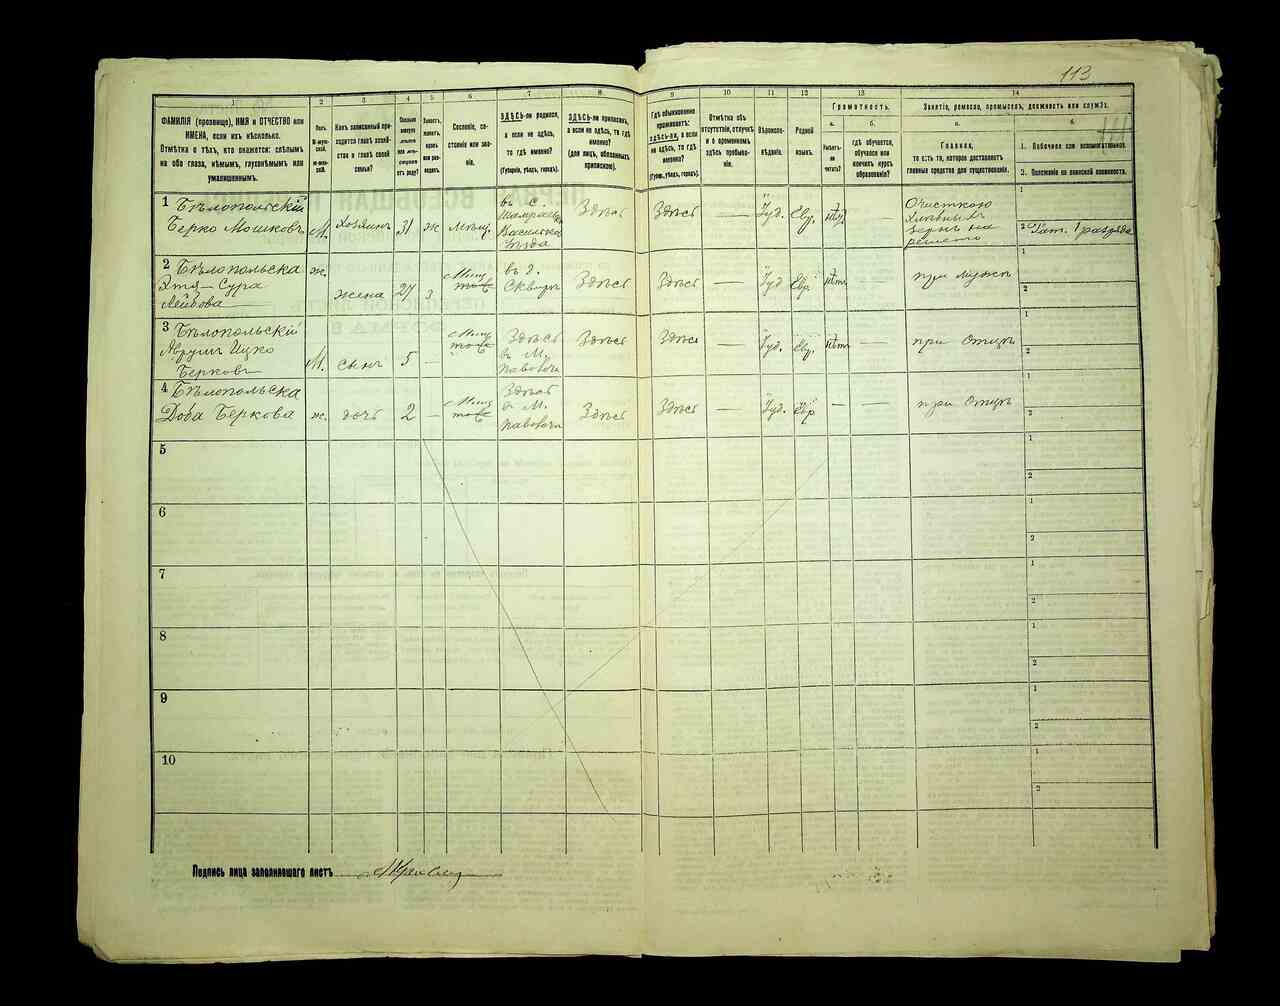 113
1
2
3
4
5
6
7
8
9
10
11
12
13
14
ФАМИЛІЯ (прозвище), ИМЯ и ОТЧЕСТВО или
ИМЕНА, если ихъ нѣсколько.
Отмѣтка о тѣхъ, кто окажется: слѣпымъ
на оба глаза, нѣмымъ, глухонѣмымъ или
умалишеннымъ.
Полъ.
М-муж-
ской.
Ж-жен-
скій.
Какъ записанный при-
ходится главѣ хозяй-
ства и главѣ своей
семьи?
Сословіе, со-
стояніе или зва-
ніе.
ЗДѢСЬ-ли родился,
а если не здѣсь,
то гдѣ именно?
(Губернія, уѣздъ, городъ).
ЗДѢСЬ-ли приписанъ,
а если не здѣсь, то гдѣ
именно?
(для лицъ, обязанныхъ
припискою).
Гдѣ обыкновенно
проживаетъ:
здѣсь-ли, а если
не здѣсь, то гдѣ
именно?
(Губерн., уѣздъ, городъ).
Отмѣтка объ
отсутствіи, отлучкѣ
и о временномъ
здѣсь пребыва-
ніи.
Вѣроиспо-
вѣданіе.
Родной
языкъ.
Грамотность.
а.
Умѣетъ-
ли
читать?
б.
гдѣ обучается,
обучался или
кончилъ курсъ
образованія?
Занятіе, ремесло, промыселъ, должность или служба.
а.
Главное,
то есть то, которое доставляетъ
главныя средства для существованія.
б.
1. Побочное или вспомогательное.
2. Положеніе по воинской повинности.
1 Бѣлопольскій
Берко Мошковъ
М.
Хозяинъ
31
ж
мѣщ.
въ с.
Здѣсь
Здѣсь
—
Іуд.
Евр.
—
Очисткою
хлѣбныхъ
зеренъ на
решето
1
2 Рат. 1 разряда
2 Бѣлопольска
Этя-Сура
Лейбова
ж.
жена
27
з
въ г.
Сквирѣ
Здѣсь
Здѣсь
—
Іуд
Евр.
нѣт
—
при мужѣ
1
2
3 Бѣлопольскій
Аврумъ Ицко
Берковъ
М.
сынъ
5
—
Здѣсь
въ М.
Паволочи
Здѣсь
Здѣсь
—
Іуд.
Евр.
нѣт
—
при Отцѣ
1
2
4 Бѣлопольска
Доба Беркова
ж.
дочь
2
—
Здѣсь
в М.
Паволочи
Здѣсь
Здѣсь
—
Іуд.
Евр
—
—
при Отцѣ
1
2
5
1
2
6
1
2
7
1
2
8
1
2
9
1
2
10
1
2
Подпись лица заполнявшаго листъ